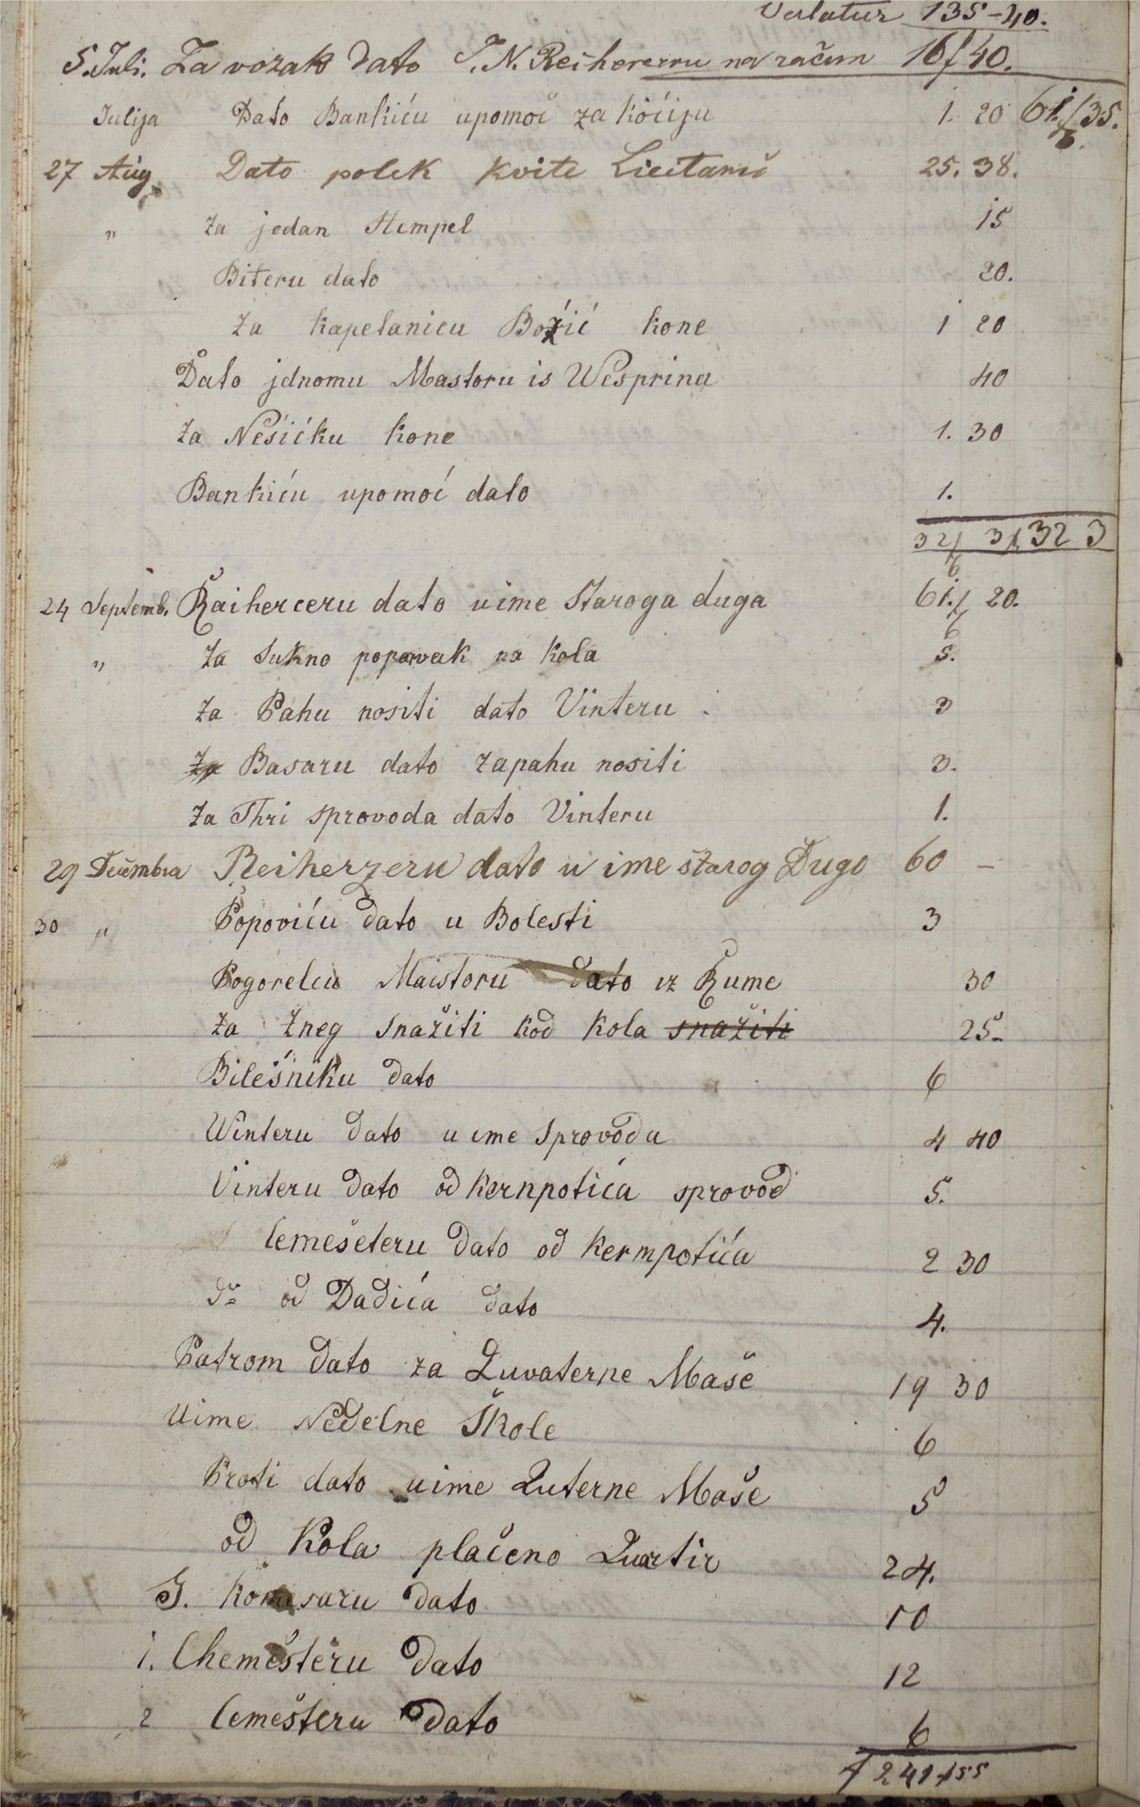 Verlatur 135-40.
5. Juli. Za vozak dato T. N. na račun 16f 40.
Julija Dato Bankiću upomoć za kóćiju 1. 20 61/35.
27 Aug. Dato polek kvite 25. 38.
" Za jedan Stempel 15
Biteru dato 20.
Za kapelanicu Božić kone 1 20
Dato jednomu Mastoru is Wesprina 40
Za Nesićku kone 1. 30
Bankiću upomoć dato 1.
32/ 3 /32 3
24 Septemb. Raiherceru dato uime Staroga duga 61./ 20.
" Za Sukno popravak na kola 5.
Za Pahu nositi dato Vinteru 3
Basaru dato zapahu nositi 3.
Za Thri sprovoda dato Vinteru 1.
29 Decembra Reiherzeru dato u ime starog Dugo 60 –
30 " Popoviću dato u Bolesti 3
Pogorelcu Maistoru dato iz Rume 30
Za Zneg Snažiti kod kola snažiti 25-
Bilešniku dato 6
Winteru dato u ime Sprovoda 4 40
Vinteru dato od Kernpotića sprovod 5.
Cemešeteru dato od Kermpotića 2 30
od Dadića dato 4.
Patrom dato za Quvaterne Maše 19 30
Uime Nedelne Škole 6
Proti dato uime Quterne Maše 5
od Kola plačeno Quartir 24.
G. Komesaru dato 10
1. Chemešteru dato 12
2 Cemešteru dato 6
f 241 f 55